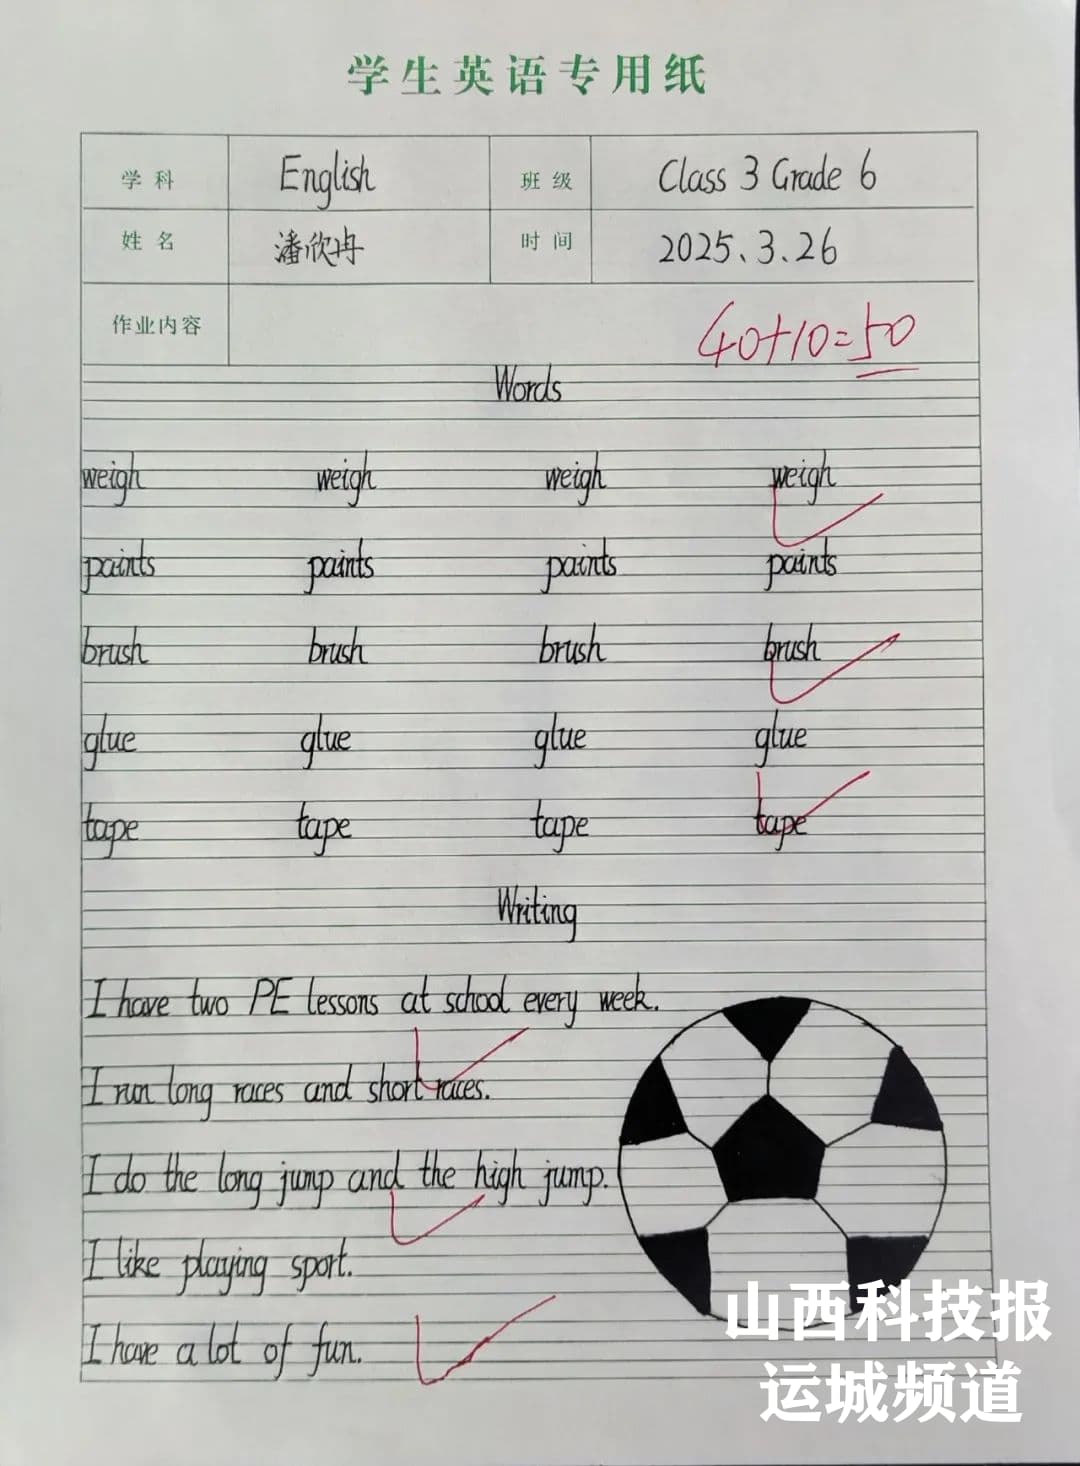 学生英语专用纸
学科 English 班级 Class 3 Grade 6
姓名 潘欣冉 时间 2025.3.26
作业内容
40+10=50
Words
weigh weigh weigh weigh
paints paints paints paints
brush brush brush brush
glue glue glue glue
tape tape tape tape
Writing
I have two PE lessons at school every week.
I run long races and short races.
I do the long jump and the high jump.
I like playing sport.
I have a lot of fun.
山西科技报
运城频道